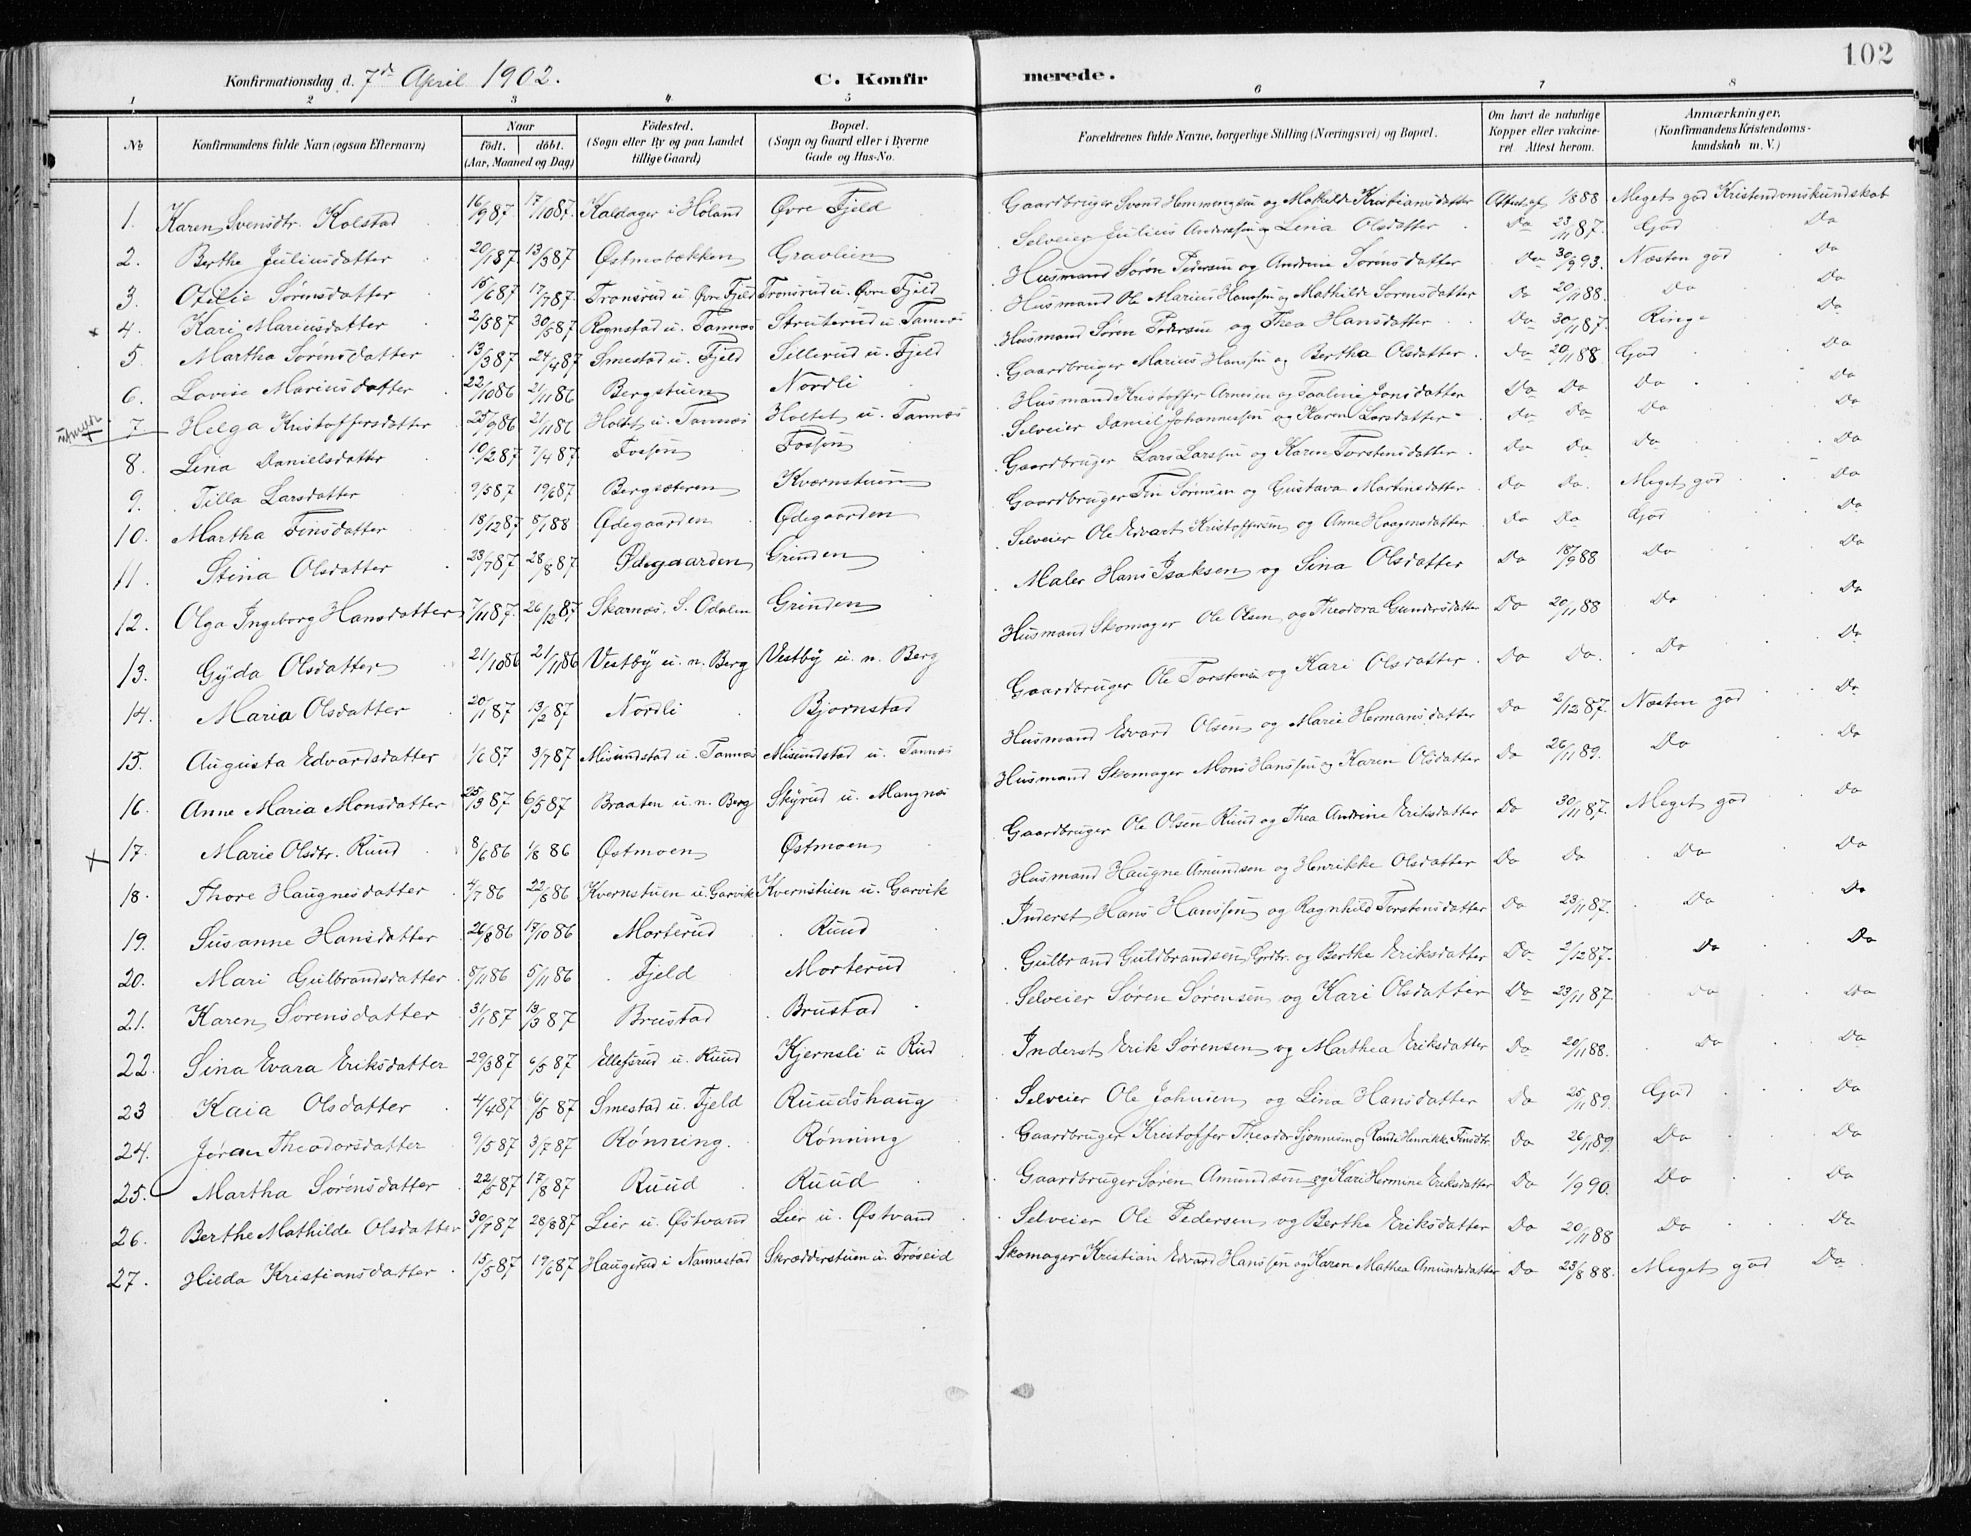 102
Konfirmationsdag d. 7de April 1902. C. Konfirmerede.
1 2 3 4 5 6 7 8
No Konfirmandens fulde Navn (ogsaa Efternavn) Naar født. døbt. (Aar, Maaned og Dag) Födested. (Sogn eller By og paa Landet tillige Gaard) Bopæl. (Sogn og Gaard eller i Byerne Gade og Hus-No. Forældrenes fulde Navne, borgerlige Stilling (Næringsvei) og Bopæl. Om havt de naturlige Kopper eller vakcineret Attest herom. Anmærkninger. (Konfirmandens Kristendomskundskab m. V.)
1. Karen Svensdtr. Kolstad 16/9 87 17/10 87 Kaldager i Høland Øvre Fjeld Gaardbruger Svend Hemmingsen og Mathilde Kristiansdatter Attest af 1/8 88 Meget god Kristendomskundskab
2. Berthe Juliusdatter 20/1 87 13/3 87 Østmobækken Gravlien Selveier Julius Anderssen og Lina Olsdatter Do 23/11 87. God Do
3. Otilie Sørensdatter 15/6 87 17/7 87. Tronsrud u. Øvre Fjeld Tronsrud u. Øvre Fjeld Husmand Søren Pedersen og Andrine Sørensdatter Do 30/9 93. Næsten god Do
4. Kari Mariusdatter 2/5 87 30/5 87 Rognstad u. Tannæs Struterud u. Tannæs Husmand Ole Marius Hanssen og Mathilde Sørensdatter Do 20/11 88. Do Do
5. Martha Sørensdatter 13/3 87 24/4 87 Smestad u. Fjeld Sellerud u. Fjeld Husmand Søren Pedersen og Thea Hansdatter Do 30/11 87. Ringe Do
6. Lovise Mariusdatter 22/10 86 21/11 86 Bergstuen Nordli Gaardbruger Marius Hanssen og Bertha Olsdatter Do 20/11 88. God Do
7 Helga Kristoffersdatter 25/9 86 21/11 86 Holtet u. Tannæs Holtet u. Tannæs Husmand Kristoffer Arnesen og Paaline Jonsdatter Do Do Do Do
8. Lina Danielsdatter 10/2 87 7/4 87 Fossen Fossen Selveier Daniel Johannessen og Karen Larsdatter Do Do Do Do
9. Tilla Larsdatter 9/5 87 19/6 87 Bergsæteren Kværnstuen Gaardbruger Lars Larssen og Karen Torstensdatter Do Do Do Do
10. Martha Finsdatter 18/12 87 8/1 88 Ødegaarden Ødegaarden Gaardbruger Fin Sørensen og Gustava Martinsdatter Do Do. Meget god Do
11. Stina Olsdatter 23/7 87 28/8 87 Ødegaarden Grinden Selveier Ole Edvart Kristoffersen og Anne Haagensdatter Do Do God Do
12. Olga Ingeborg Hansdatter 7/11 87. 26/12 87 Skarnæs. S. Odalen Grinden Maler Hans Isaksen og Sina Olsdatter Do 18/9 88 Do Do
13. Gyda Olsdatter 21/10 86 21/11 86 Vestby u. n. Berg Vestby u. n. Berg Husmand Skomager Ole Olsen og Theodora Gundersdatter Do 20/11 88 Do Do
14. Maria Olsdatter 20/1 87 13/2 87 Nordli Bjornstad Gaardbruger Ole Torstensen og Kari Olsdatter. Do Do. Do Do
15. Augusta Edvardsdatter 1/6 87 3/7 87 Misundstad u. Tannæs Misundstad u. Tannæs Husmand Edvard Olsen og Marie Hermansdatter Do 2/12 87. Næsten god Do
16. Anne Maria Monsdatter 25/3 87 6/5 87 Braaten u. n. Berg Skyrud u. Mangnæs Husmand Skomager Mons Hanssen og Karen Olsdatter Do 26/11 89. Do Do
17. Marie Olsdtr. Ruud 8/6 86 1/8 86 Østmoen Østmoen Gaardbruger Ole Olsen Ruud og Thea Andrine Eriksdatter Do 30/11 87. Meget god Do
18. Thore Haugnesdatter 4/7 86 22/8 86 Kvernstuen u. Garvik Kvernstuen u. Garvik Husmand Haugne Amundsen og Henrikke Olsdatter Do Do Do Do
19. Susanne Hansdatter 26/8 86 17/10 86 Morterud Ruud Inderst Hans Hanssen og Ragnhild Torstensdatter Do 23/11 87. Do Do
20. Mari Gulbrandsdatter 8/11 86 5/11 86 Fjeld Morterud Gulbrand Guldbrandsen, Grdbr. og Berthe Eriksdatter Do 2/12 87. Do Do
21. Karen Sørensdatter 31/1 87 13/3 87 Brustad Brustad Selveier Søren Sørensen og Kari Olsdatter Do 23/11 87. Do Do
22. Sina Evara Eriksdatter 29/3 87 6/5 87 Ellefsrud u. Ruud Kjernsli u Rud Inderst Erik Sørensen og Marthea Eriksdatter Do 20/11 88. Do Do
23 Kaia Olsdatter 4/4 87 6/5 87 Smestad u. Fjeld Ruudshaug Selveier Ole Johnsen og Lina Hansdatter Do 25/11 89. God Do
24. Jøran Theodorsdatter 9/5 87 3/7 87 Rønning. Rønning Gaardbruger Kristoffer Theodor Sjønnesen og Randi Henrikke Finsdtr. Do 26/11 89. Do Do
25. Martha Sørensdatter 22/5 87 17/8 87 Ruud Ruud Gaardbruger Søren Amundsen og Kari Hermine Eriksdatter Do 1/9 90. Do Do
26. Berthe Mathilde Olsdatter 30/7 87 28/8 87 Lier u. Østvand Lier u. Østvand Selveier Ole Pedersen og Berthe Eriksdatter Do 20/11 88 Do Do
27. Hilda Kristiansdatter 15/5 87 19/6 87 Haugerud i Nannestad Skrædderstuen u. Trøseid Skomager Kristian Edvard Hanssen og Karen Mathea Amundsdatter Do 23/8 88. Meget god Do